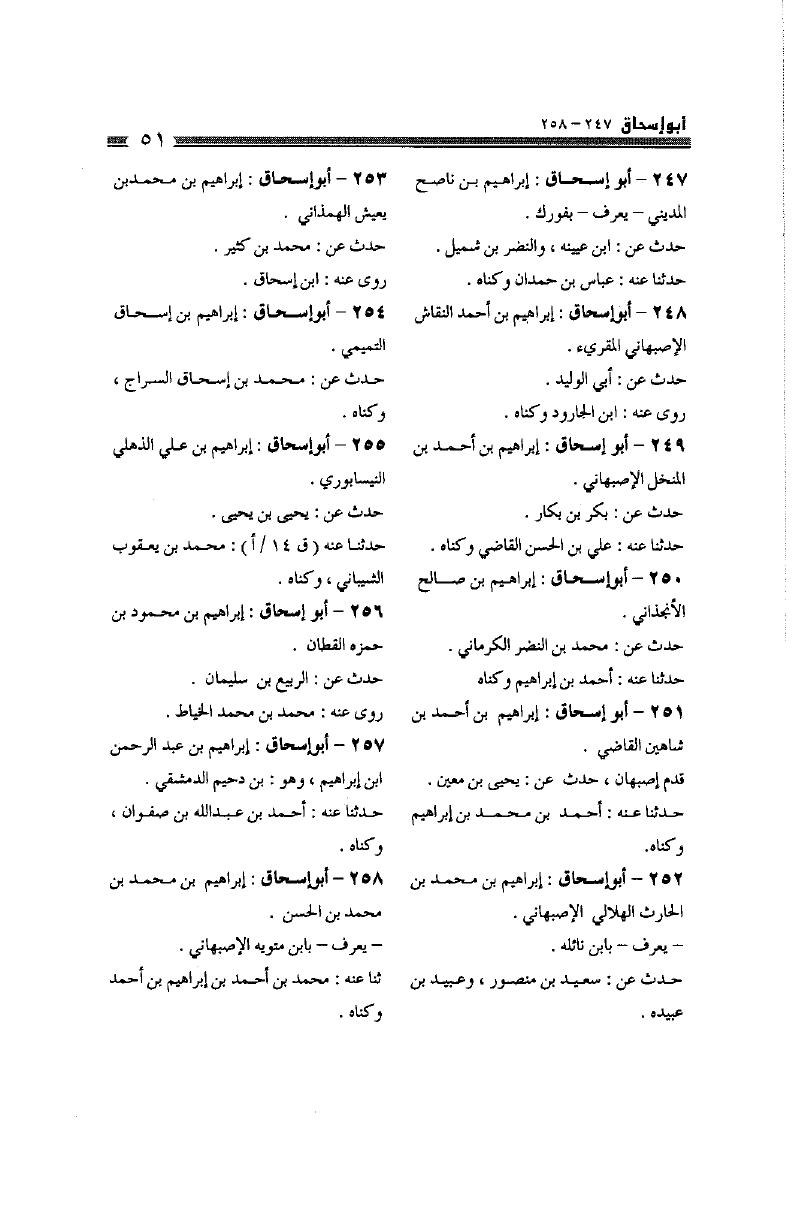 أبوإسحاق ٢٤٧ – ٢٥٨
٥١
٢٤٧ – أبو إسحاق : إبراهيم بن ناصح
المديني – يعرف – بفورك .
حدث عن : ابن عيينه ، والنضر بن شميل .
حدثنا عنه : عباس بن حمدان وكناه .
٢٤٨ – أبوإسحاق : إبراهيم بن أحمد النقاش
الإصبهاني المقريء .
حدث عن : أبي الوليد .
روى عنه : ابن الجارود وكناه .
٢٤٩ – أبو إسحاق : إبراهيم بن أحمد بن
المنخل الإصبهاني .
حدث عن : بكر بن بكار .
حدثنا عنه : علي بن الحسن القاضي وكناه .
٢٥٠ – أبوإسحاق : إبراهيم بن صالح
الأنجذاني .
حدث عن : محمد بن النضر الكرماني .
حدثنا عنه : أحمد بن إبراهيم وكناه
٢٥١ – أبو إسحاق : إبراهيم بن أحمد بن
شاهين القاضي .
قدم إصبهان ، حدث عن : يحيى بن معين .
حدثنا عنه : أحمد بن محمد بن إبراهيم
وكناه.
٢٥٢ – أبوإسحاق : إبراهيم بن محمد بن
الحارث الهلالي الإصبهاني .
– يعرف – بابن نائله .
حدث عن : سعيد بن منصور ، وعبيد بن
عبيده .
٢٥٣ – أبوإسحاق : إبراهيم بن محمدبن
يعيش الهمذاني .
حدث عن : محمد بن كثير .
روى عنه : ابن إسحاق .
٢٥٤ – أبوإسحاق : إبراهيم بن إسحاق
التميمي .
حدث عن : محمد بن إسحاق السراج ،
وكناه .
٢٥٥ – أبوإسحاق : إبراهيم بن علي الذهلي
النيسابوري .
حدث عن : يحيى بن يحيى .
حدثنا عنه ( ق ١٤ / أ ) : محمد بن يعقوب
الشيباني ، وكناه .
٢٥٦ – أبو إسحاق : إبراهيم بن محمود بن
حمزه القطان .
حدث عن : الربيع بن سليمان .
روى عنه : محمد بن محمد الخياط .
٢٥٧ – أبوإسحاق : إبراهيم بن عبد الرحمن
ابن إبراهيم ، وهو : بن دحيم الدمشقي .
حدثنا عنه : أحمد بن عبدالله بن صفوان ،
وكناه .
٢٥٨ – أبوإسحاق : إبراهيم بن محمد بن
محمد بن الحسن .
– يعرف – بابن متويه الإصبهاني .
ثنا عنه : محمد بن أحمد بن إبراهيم بن أحمد
وكناه .